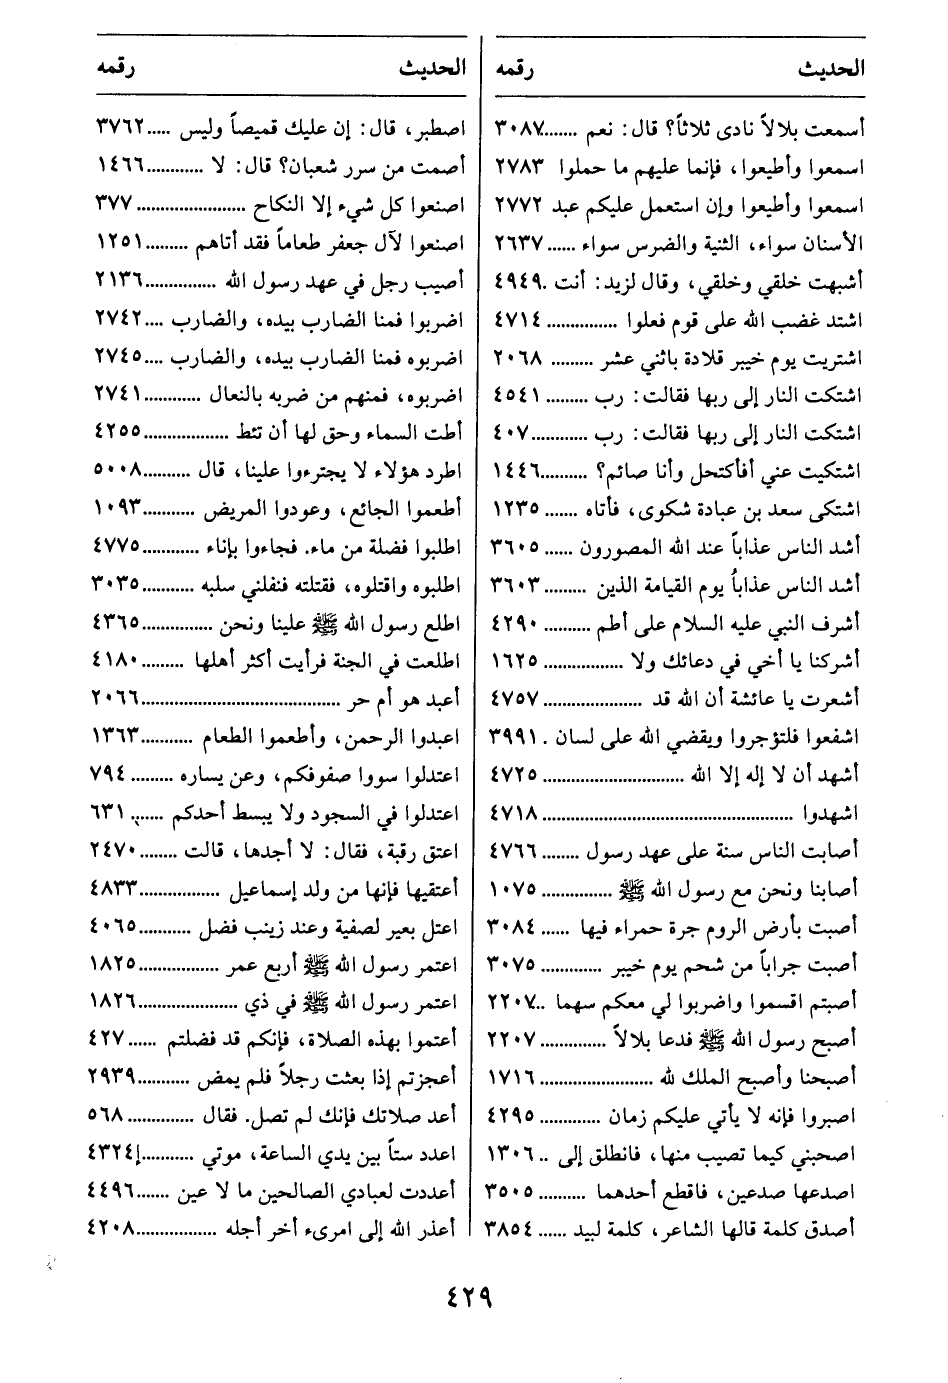 الحديث رقمه
أسمعت بلالاً نادى ثلاثاً؟ قال: نعم .......٣٠٨٧
اسمعوا وأطيعوا، فإنما عليهم ما حملوا ٢٧٨٣
اسمعوا وأطيعوا وإن استعمل عليكم عبد ٢٧٧٢
الأسنان سواء، الثنية والضرس سواء ...... ٢٦٣٧
أشبهت خلقي وخلقي، وقال لزيد: أنت .٤٩٤٩
اشتد غضب الله على قوم فعلوا ............... ٤٧١٤
اشتريت يوم خيبر قلادة باثني عشر ......... ٢٠٦٨
اشتكت النار إلى ربها فقالت: رب ......... ٤٥٤١
اشتكت النار إلى ربها فقالت: رب ............ ٤٠٧
اشتكيت عني أفأكتحل وأنا صائم؟ ..........١٤٤٦
اشتكى سعد بن عبادة شكوى، فأتاه ....... ١٢٣٥
أشد الناس عذاباً عند الله المصورون ...... ٣٦٠٥
أشد الناس عذاباً يوم القيامة الذين ......... ٣٦٠٣
أشرف النبي عليه السلام على أطم .......... ٤٢٩٠
أشركنا يا أخي في دعائك ولا ................. ١٦٢٥
أشعرت يا عائشة أن الله قد ..................... ٤٧٥٧
اشفعوا فلتؤجروا ويقضي الله على لسان . ٣٩٩١
أشهد أن لا إله إلا الله .............................. ٤٧٢٥
اشهدوا ..................................................... ٤٧١٨
أصابت الناس سنة على عهد رسول ........ ٤٧٦٦
أصابنا ونحن مع رسول الله ﷺ ............... ١٠٧٥
أصبت بأرض الروم جرة حمراء فيها ...... ٣٠٨٤
أصبت جراباً من شحم يوم خيبر ............. ٣٠٧٥
أصبتم اقسموا واضربوا لي معكم سهما ..٢٢٠٧
أصبح رسول الله ﷺ فدعا بلالاً .............. ٢٢٠٧
أصبحنا وأصبح الملك لله ........................ ١٧١٦
اصبروا فإنه لا يأتي عليكم زمان ............. ٤٢٩٥
اصحبني كيما تصيب منها، فانطلق إلى .. ١٣٠٦
اصدعها صدعين، فاقطع أحدهما .......... ٣٥٠٥
أصدق كلمة قالها الشاعر، كلمة لبيد ...... ٣٨٥٤
الحديث رقمه
اصطبر، قال: إن عليك قميصاً وليس .....٣٧٦٢
أصمت من سرر شعبان؟ قال: لا ............ ١٤٦٦
اصنعوا كل شيء إلا النكاح ....................... ٣٧٧
اصنعوا لآل جعفر طعاماً فقد أتاهم ......... ١٢٥١
أصيب رجل في عهد رسول الله ............... ٢١٣٦
اضربوا فمنا الضارب بيده، والضارب .... ٢٧٤٢
اضربوه فمنا الضارب بيده، والضارب .... ٢٧٤٥
اضربوه، فمنهم من ضربه بالنعال ............ ٢٧٤١
أطت السماء وحق لها أن تئط .................. ٤٢٥٥
اطرد هؤلاء لا يجترءوا علينا، قال .......... ٥٠٠٨
أطعموا الجائع، وعودوا المريض ........... ١٠٩٣
اطلبوا فضلة من ماء. فجاءوا بإناء ............ ٤٧٧٥
اطلبوه واقتلوه، فقتلته فنفلني سلبه ........... ٣٠٣٥
اطلع رسول الله ﷺ علينا ونحن ............... ٤٣٦٥
اطلعت في الجنة فرأيت أكثر أهلها ......... ٤١٨٠
أعبد هو أم حر ..........................................٢٠٦٦
اعبدوا الرحمن، وأطعموا الطعام ........... ١٣٦٣
اعتدلوا سووا صفوفكم، وعن يساره ......... ٧٩٤
اعتدلوا في السجود ولا يبسط أحدكم ....... ٦٣١
اعتق رقبة، فقال: لا أجدها، قالت ........ ٢٤٧٠
أعتقيها فإنها من ولد إسماعيل ................. ٤٨٣٣
اعتل بعير لصفية وعند زينب فضل ........... ٤٠٦٥
اعتمر رسول الله ﷺ أربع عمر ................. ١٨٢٥
اعتمر رسول الله ﷺ في ذي ..................... ١٨٢٦
أعتموا بهذه الصلاة، فإنكم قد فضلتم ...... ٤٢٧
أعجزتم إذا بعثت رجلاً فلم يمض ........... ٢٩٣٩
أعد صلاتك فإنك لم تصل. فقال .............. ٥٦٨
اعدد ستاً بين يدي الساعة، موتي ...........٤٣٢٤
أعددت لعبادي الصالحين ما لا عين .......٤٤٩٦
أعذر الله إلى امرىء أخر أجله .................٤٢٠٨
٤٢٩